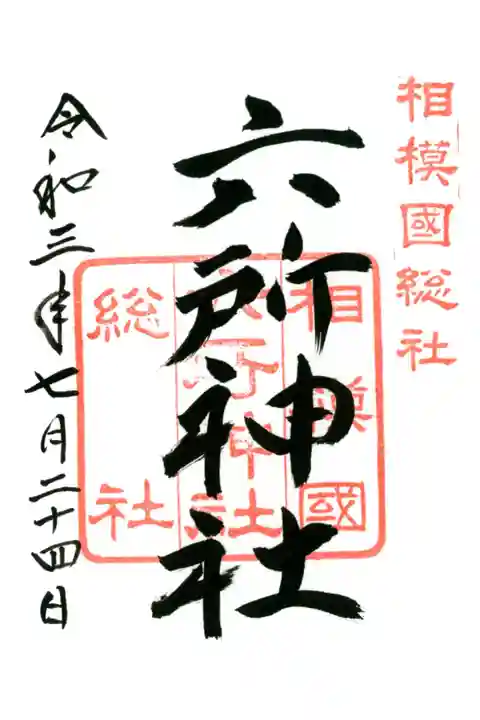 相模國総社
六所神社
相模國
六所神社
総社
令和三年七月二十四日